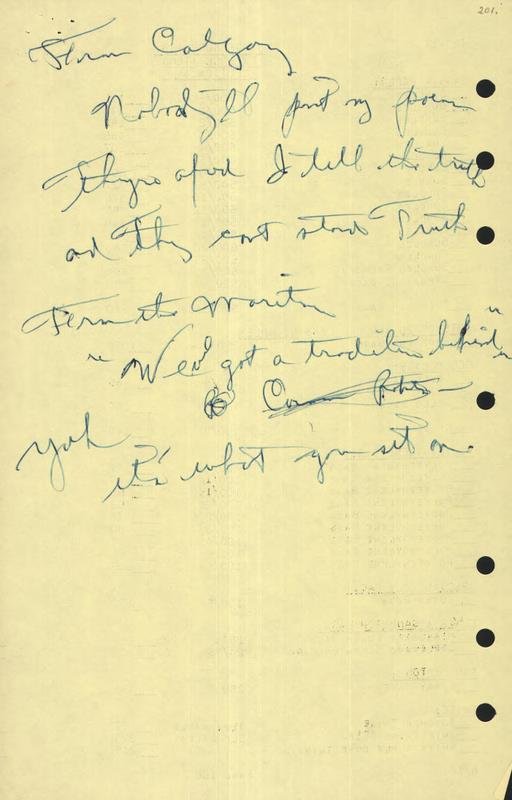 201.
From Calgary
Nobody'll print my poem
They're afraid I tell the truth
and they can't stand Truth
From the Maritimes
"We've got a tradition behind us"
yah
it's what you sit on.